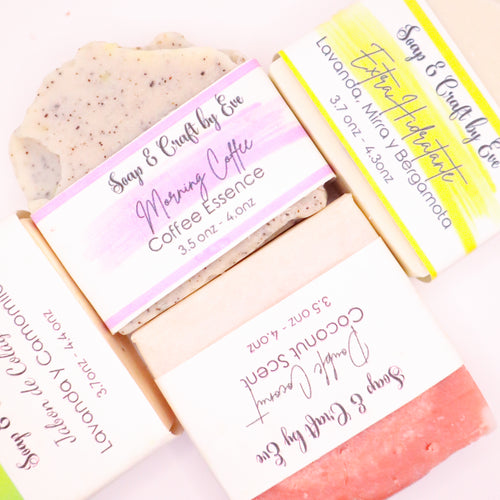 Soap & Craft by Eve
Morning Coffee
Coffee Essence
3.5 onz - 4.onz
Soap & Craft by Eve
Extra Hidratante
Lavanda, Mirra y Bergamota
3.7 onz - 4.3onz
Soap & Craft by Eve
Double Coconut
Coconut Scent
3.5 onz - 4.onz
Soap &
Jabon de
Lavanda y Camomile
3.7onz - 4.4 onz